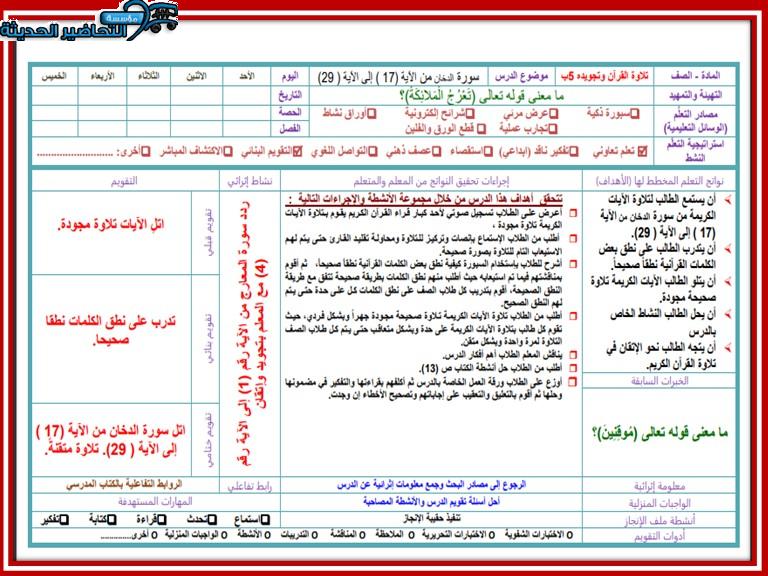 مؤسسة
التحاضير الحديثة
المادة - الصف
تلاوة القرآن وتجويده 5ب
موضوع الدرس
سورة الدخان من الآية (17 ) إلى الآية ( 29)
اليوم
الأحد
الاثنين
الثلاثاء
الأربعاء
الخميس
التهيئة والتمهيد
ما معنى قوله تعالى (تَعْرُجُ الْمَلَائِكَةُ)؟
التاريخ
مصادر التعلم
(الوسائل التعليمية)
سبورة ذكية
عرض مرئي
شرائح إلكترونية
أوراق نشاط
تجارب عملية
قطع الورق والفلين
الحصة
الفصل
استراتيجية التعلم
النشط
تعلم تعاوني
تفكير ناقد (ابداعي)
استقصاء
عصف ذهني
التواصل اللغوي
التقويم البنائي
الاكتشاف المباشر
أخرى: ...........................
نواتج التعلم المخطط لها (الأهداف)
إجراءات تحقيق النواتج من المعلم والمتعلم
نشاط إثرائي
التقويم
أن يستمع الطالب لتلاوة الآيات
الكريمة من سورة الدخان من الآية
(17 ) إلى الآية ( 29).
أن يتدرب الطالب على نطق بعض
الكلمات القرآنية نطقاً صحيحاً.
أن يتلو الطالب الآيات الكريمة تلاوة
صحيحة مجودة.
أن يحل الطالب النشاط الخاص
بالدرس
أن يتجه الطالب نحو الإتقان في
تلاوة القرآن الكريم.
الخبرات السابقة
ما معنى قوله تعالى (مُوقِنِينَ)؟
تتحقق أهداف هذا الدرس من خلال مجموعة الأنشطة والإجراءات التالية :
أعرض على الطلاب تسجيل صوتي لأحد كبار قراء القرآن الكريم يقوم بتلاوة الآيات
الكريمة تلاوة مجودة ،
أطلب من الطلاب الإستماع بإنصات وتركيز للتلاوة ومحاولة تقليد القارئ حتى يتم لهم
الاستيعاب التام للتلاوة بصورة صحيحة.
أشرح للطلاب باستخدام السبورة كيفية نطق بعض الكلمات القرآنية نطقاً صحيحا، ثم أقوم
بمناقشتهم فيما تم استيعابه حيث أطلب منهم نطق بعض الكلمات بطريقة صحيحة تتفق مع طريقة
النطق الصحيحة، أقوم بتدريب كل طلاب الصف على نطق الكلمات كل على حدة حتى يتم
لهم النطق الصحيح.
أطلب من الطلاب تلاوة الآيات الكريمة تلاوة صحيحة مجودة جهراً وبشكل فردي، حيث
تقوم كل طالب بتلاوة الآيات الكريمة على حدة وبشكل متعاقب حتى يتم كل طلاب الصف
التلاوة لمرة واحدة وبشكل متقن.
يناقش المعلم الطلاب أهم أفكار الدرس.
أطلب من الطلاب حل أنشطة الكتاب ص (13).
أوزع على الطلاب ورقة العمل الخاصة بالدرس ثم أكلفهم بقراءتها والتفكير في مضمونها
وحلها ثم أقوم بالتعليق والتعقيب على إجاباتهم وتصحيح الأخطاء إن وجدت.
ردد سورة المعارج من الآية رقم (1) إلى الآية رقم
(4) مع المعلم بتجويد وإتقان
تقويم قبلي
اتل الآيات تلاوة مجودة.
تقويم بنائي
تدرب على نطق الكلمات نطقا
صحيحا.
تقويم ختامي
اتل سورة الدخان من الآية (17 )
إلى الآية ( 29). تلاوة متقنة.
معلومة إثرائية
الرجوع إلى مصادر البحث وجمع معلومات إثرائية عن الدرس
رابط تفاعلي
الروابط التفاعلية بالكتاب المدرسي
الواجبات المنزلية
أحل أسئلة تقويم الدرس والأنشطة المصاحبة
المهارات المستهدفة
أنشطة ملف الإنجاز
تنفيذ حقيبة الإنجاز
استماع
تحدث
قراءة
كتابة
تفكير
أدوات التقويم
o الاختبارات الشفوية
o الاختبارات التحريرية
o الملاحظة
o المناقشة
o التدريبات
o الأنشطة
o الواجبات المنزلية
o أخرى..............